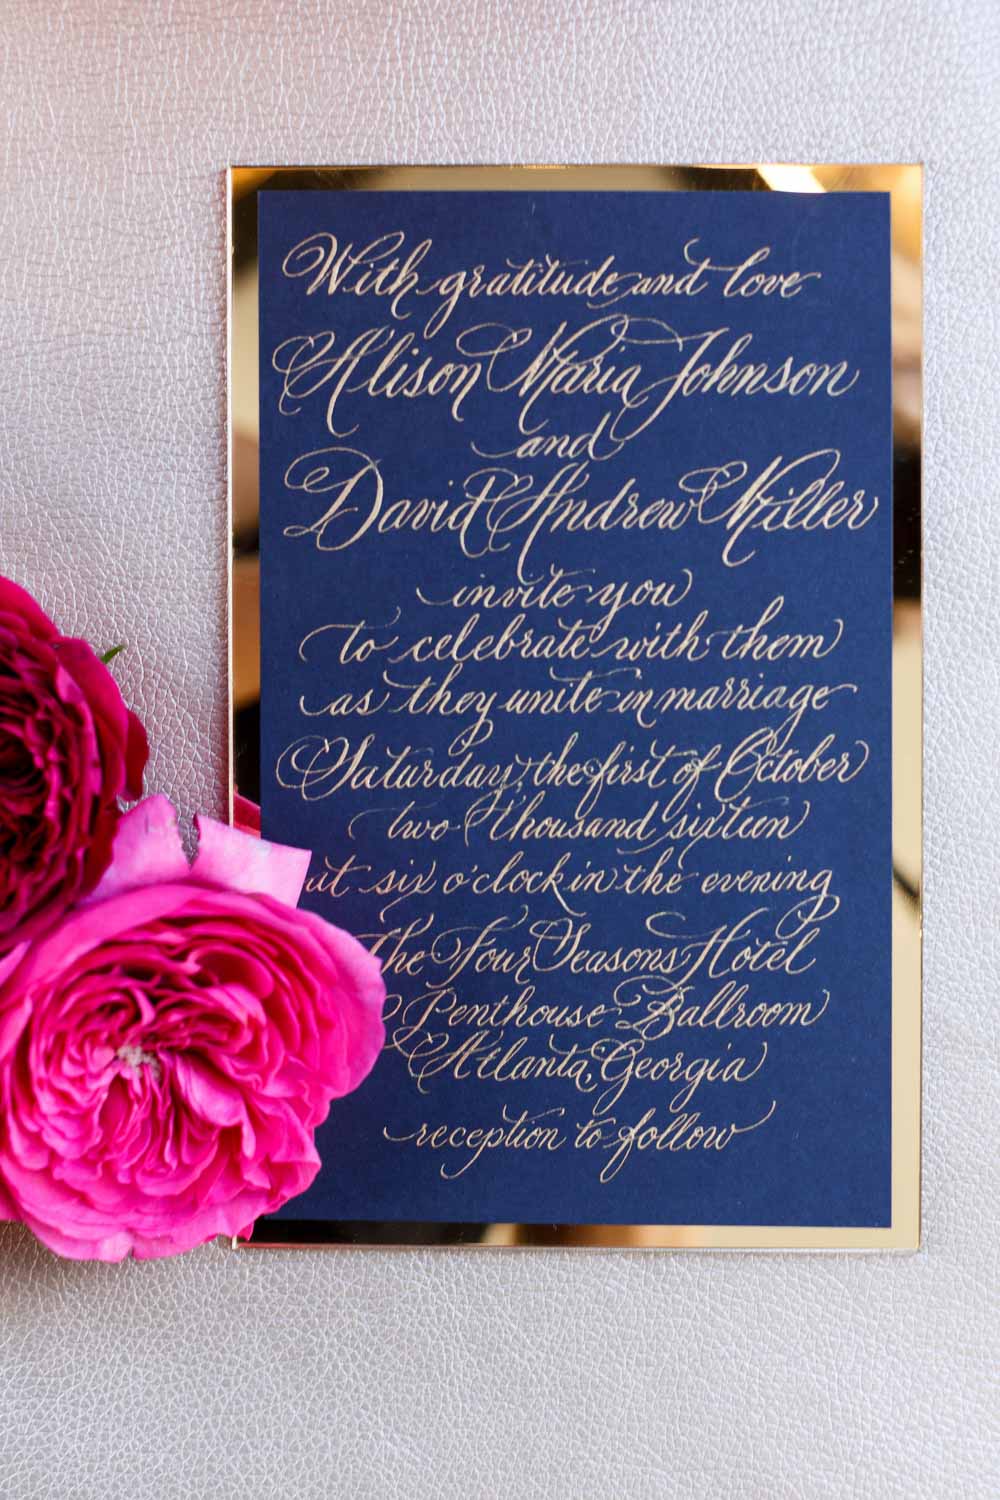 With gratitude and love
Alison Maria Johnson
and
David Andrew Miller
invite you
to celebrate with them
as they unite in marriage
Saturday, the first of October
two thousand sixteen
at six o'clock in the evening
The Four Seasons Hotel
Penthouse Ballroom
Atlanta, Georgia
reception to follow